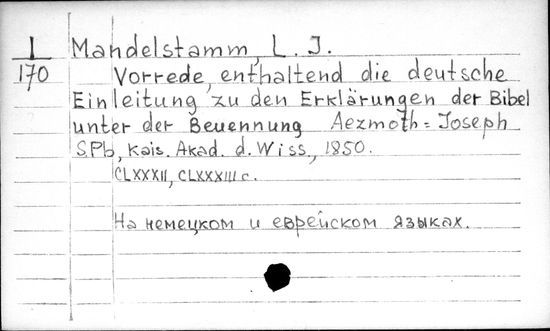 I Mandelstamm, L. J.
170 Vorrede, enthaltend die deutsche
Einleitung zu den Erklärungen der Bibel
unter der Beuennung Aezmoth=Joseph
S.Pb., Kais. Akad. d. Wiss., 1850.
CLXXXII, CLXXXIII c.
На немецком и еврейском языках.